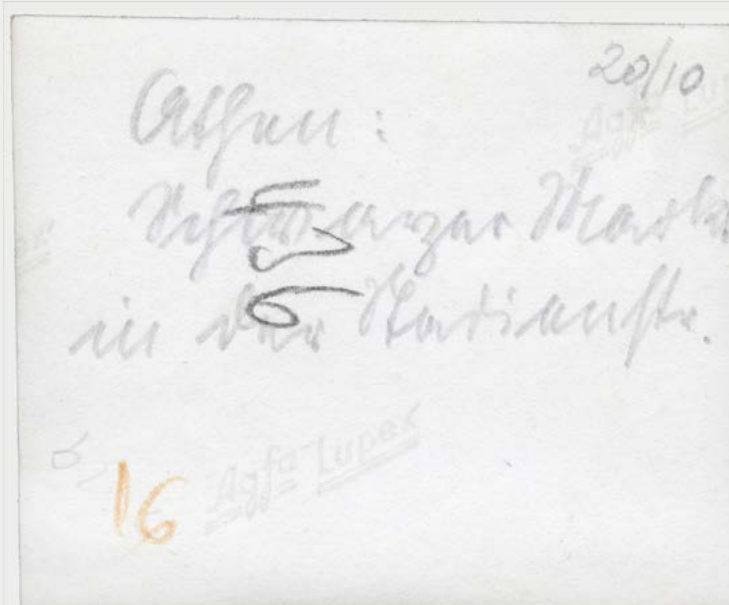 20/10
Athen:
Schwarzer Markt
in der Stadionstr.
16
Agfa Lupex